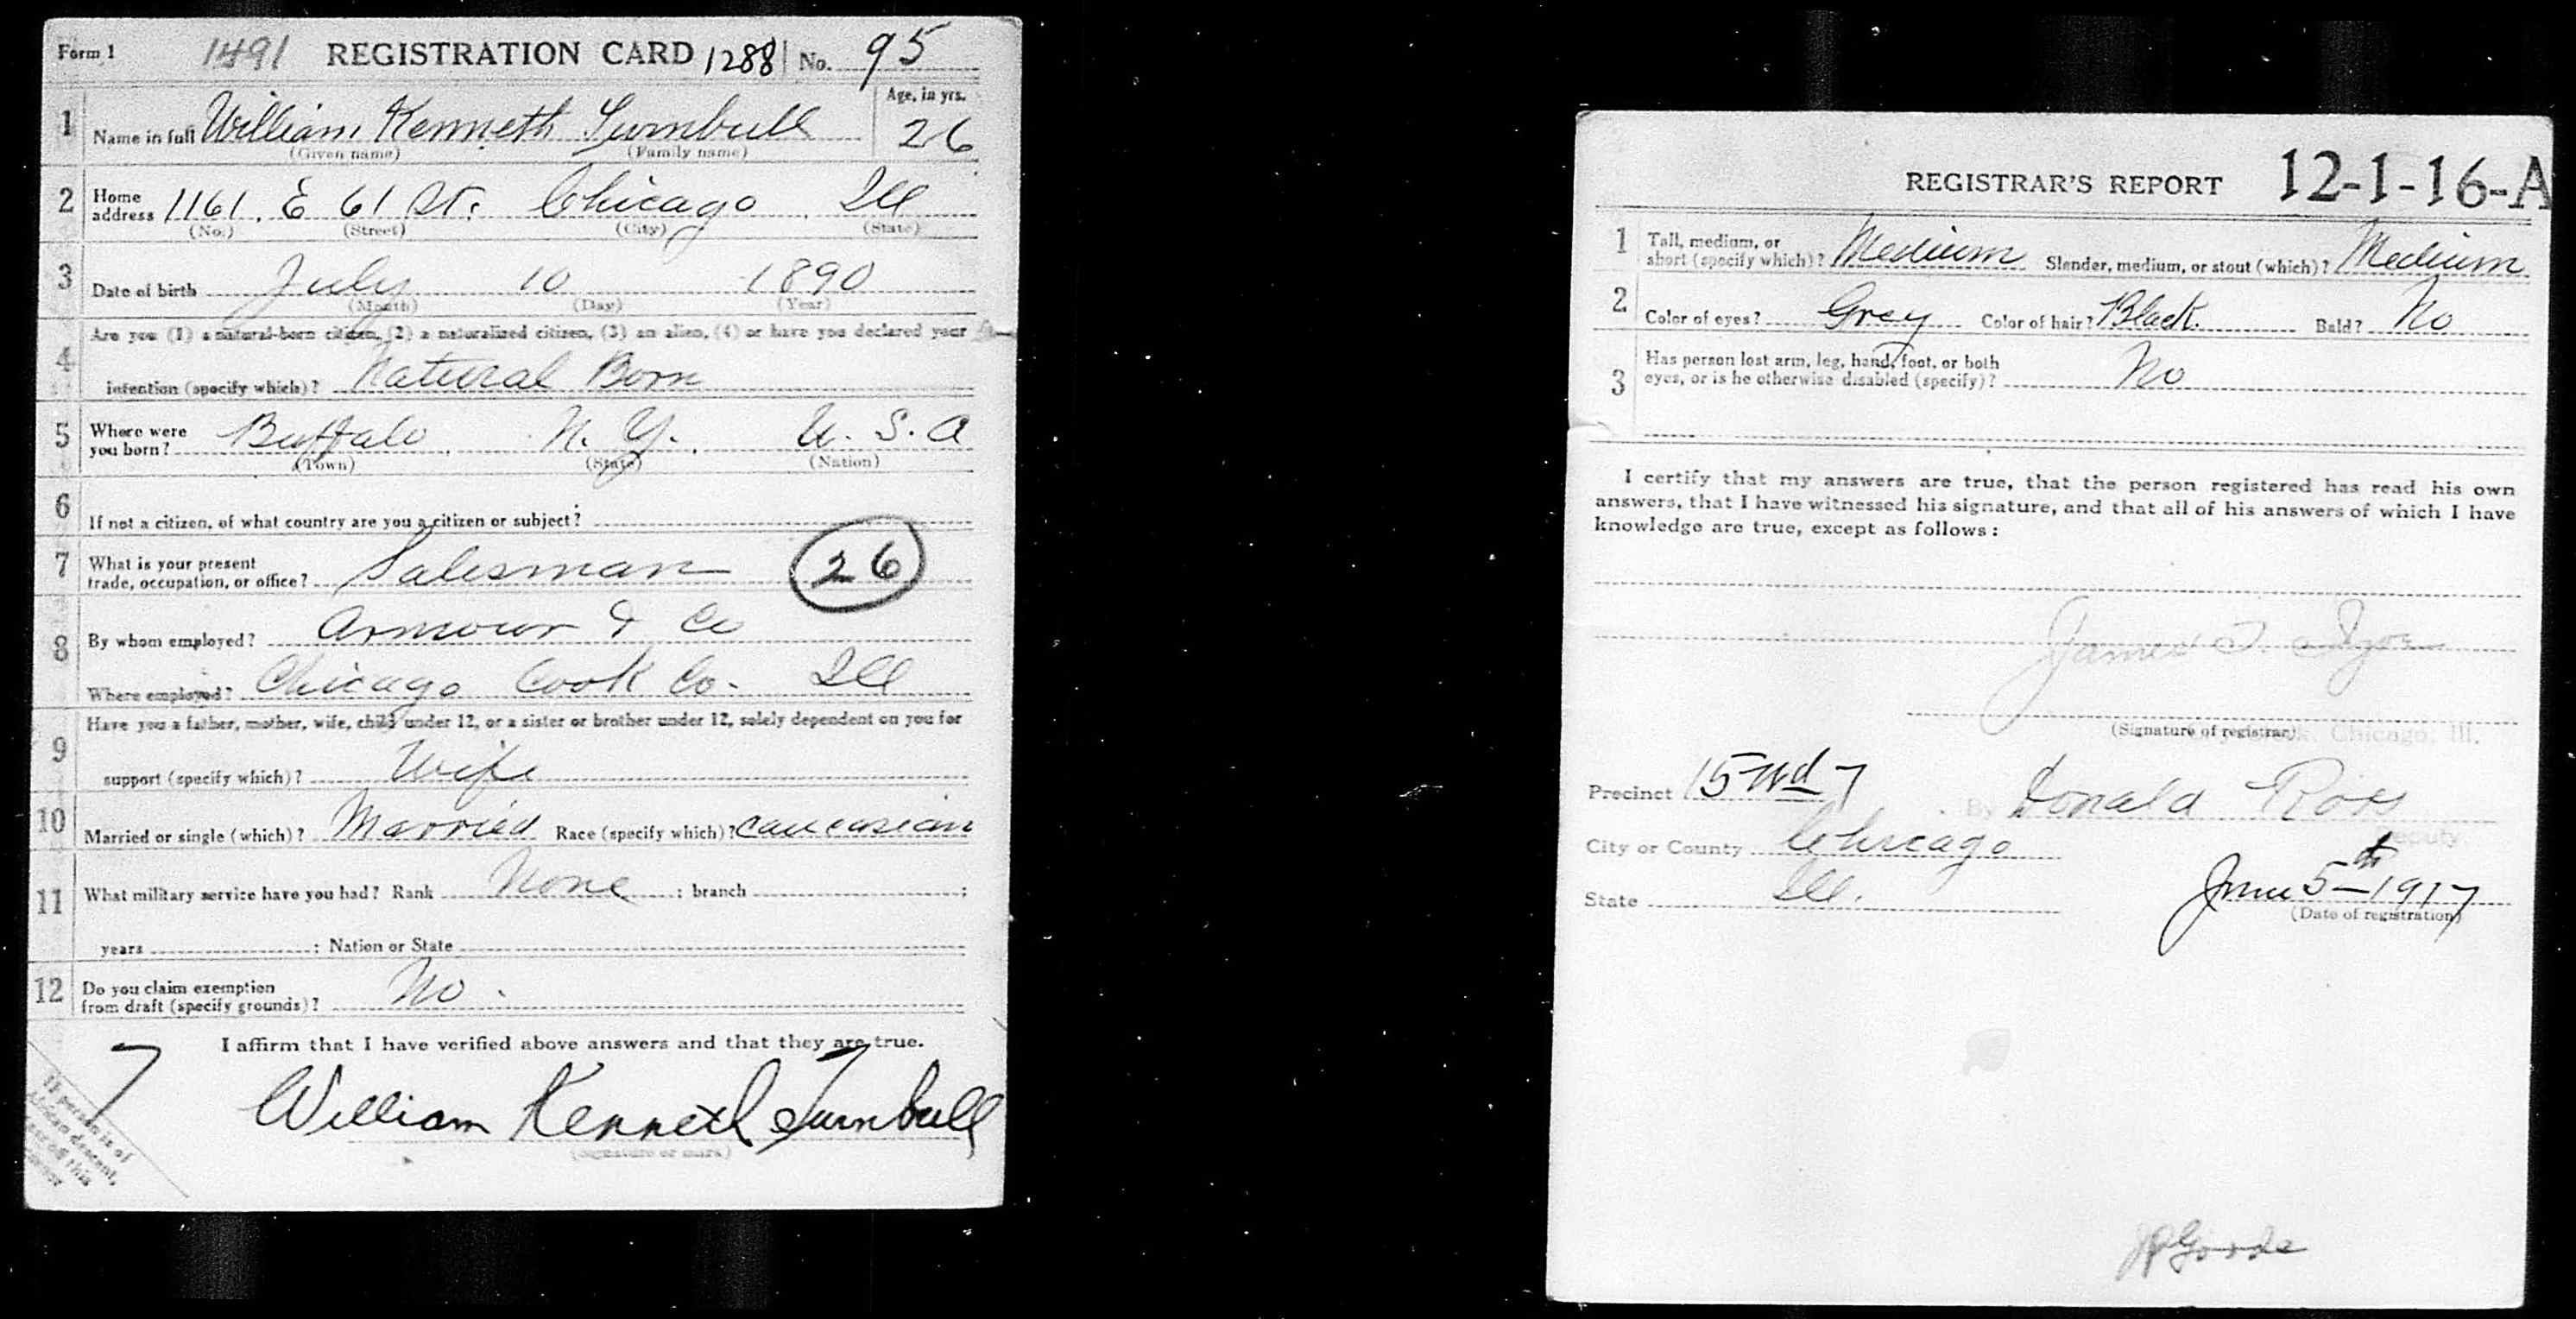 Form 1 1491 REGISTRATION CARD 1288 No. 95
1 Name in full William Kenneth Turnbull Age, in yrs. 26
(Given name) (Family name)
2 Home address 1161. E 61 St. Chicago, Ill
(No.) (Street) (City) (State)
3 Date of birth July 10 1890
(Month) (Day) (Year)
4 Are you (1) a natural-born citizen, (2) a naturalized citizen, (3) an alien, (4) or have you declared your
intention (specify which)? Natural Born
5 Where were you born? Buffalo, N. Y. U. S. A
(Town) (State) (Nation)
6 If not a citizen, of what country are you a citizen or subject?
7 What is your present trade, occupation, or office? Salesman 26
8 By whom employed? Armour & Co
Where employed? Chicago Cook Co. Ill
9 Have you a father, mother, wife, child under 12, or a sister or brother under 12, solely dependent on you for
support (specify which)? Wife
10 Married or single (which)? Married Race (specify which)? Caucasian
11 What military service have you had? Rank None : branch ;
years : Nation or State
12 Do you claim exemption from draft (specify grounds)? No.
I affirm that I have verified above answers and that they are true.
7 William Kenneth Turnbull
(Signature or mark)
If person is of
African descent,
tear off this
corner
REGISTRAR'S REPORT 12-1-16-A
1 Tall, medium, or short (specify which)? Medium Slender, medium, or stout (which)? Medium
2 Color of eyes? Grey Color of hair? Black. Bald? No
3 Has person lost arm, leg, hand, foot, or both
eyes, or is he otherwise disabled (specify)? No
I certify that my answers are true, that the person registered has read his own
answers, that I have witnessed his signature, and that all of his answers of which I have
knowledge are true, except as follows:
James T.
(Signature of registrar) Chicago, Ill.
Precinct 15 Wd 7 By Donald Ross
Deputy.
City or County Chicago
State Ill. June 5th 1917
(Date of registration)